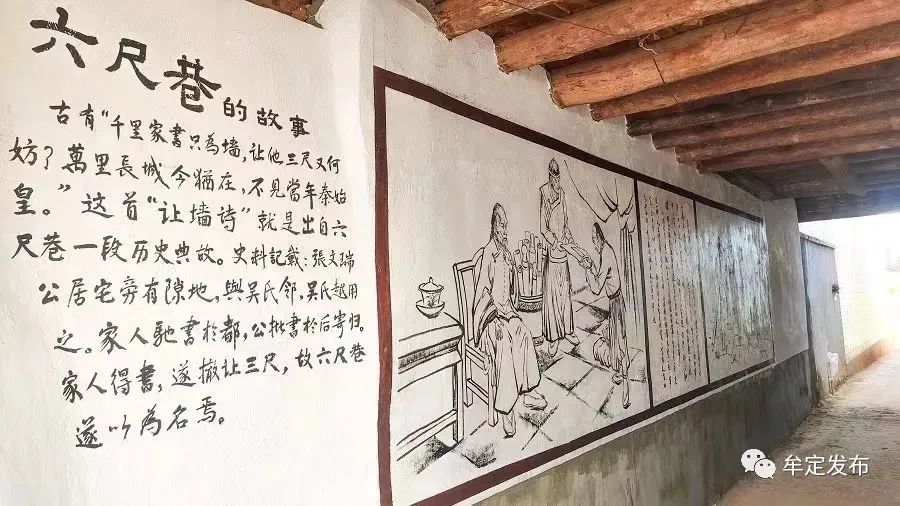 六尺巷的故事
古有“千里家書只為墙,让他三尺又何
妨?萬里長城今猶在,不見當年秦始
皇。”这首“让墙诗”就是出自六
尺巷一段历史典故。史料記載:張文瑞
公居宅旁有隙地,與吴氏邻,吴氏越用
之。家人馳書於都,公批書於后寄归。
家人得書,遂撤让三尺,故六尺巷
遂以為名焉。
牟定发布